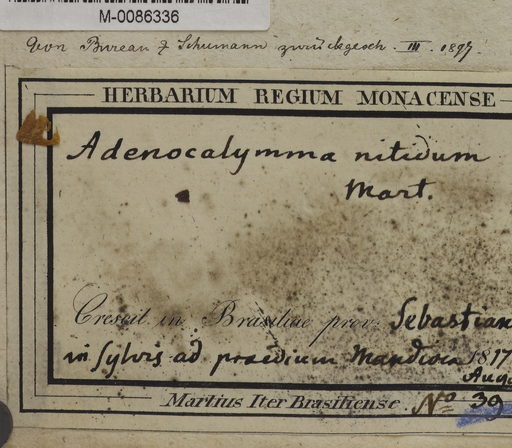 M-0086336
von Bureau & Schumann zurückgesch. III. 1897.
HERBARIUM REGIUM MONACENSE
Adenocalymma nitidum
Mart.
Crescit in Brasiliae prov. Sebastian
in sylvis ad praedium Mandioca 1817
Aug
Martius Iter Brasiliense No 39